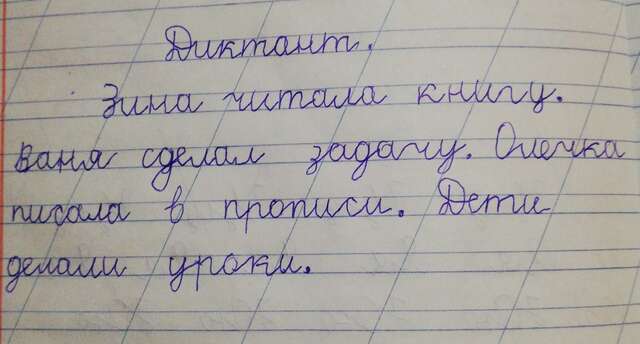 Диктант.
Зина читала книгу.
Ваня сделал задачу. Олечка
писала в прописи. Дети
делали уроки.